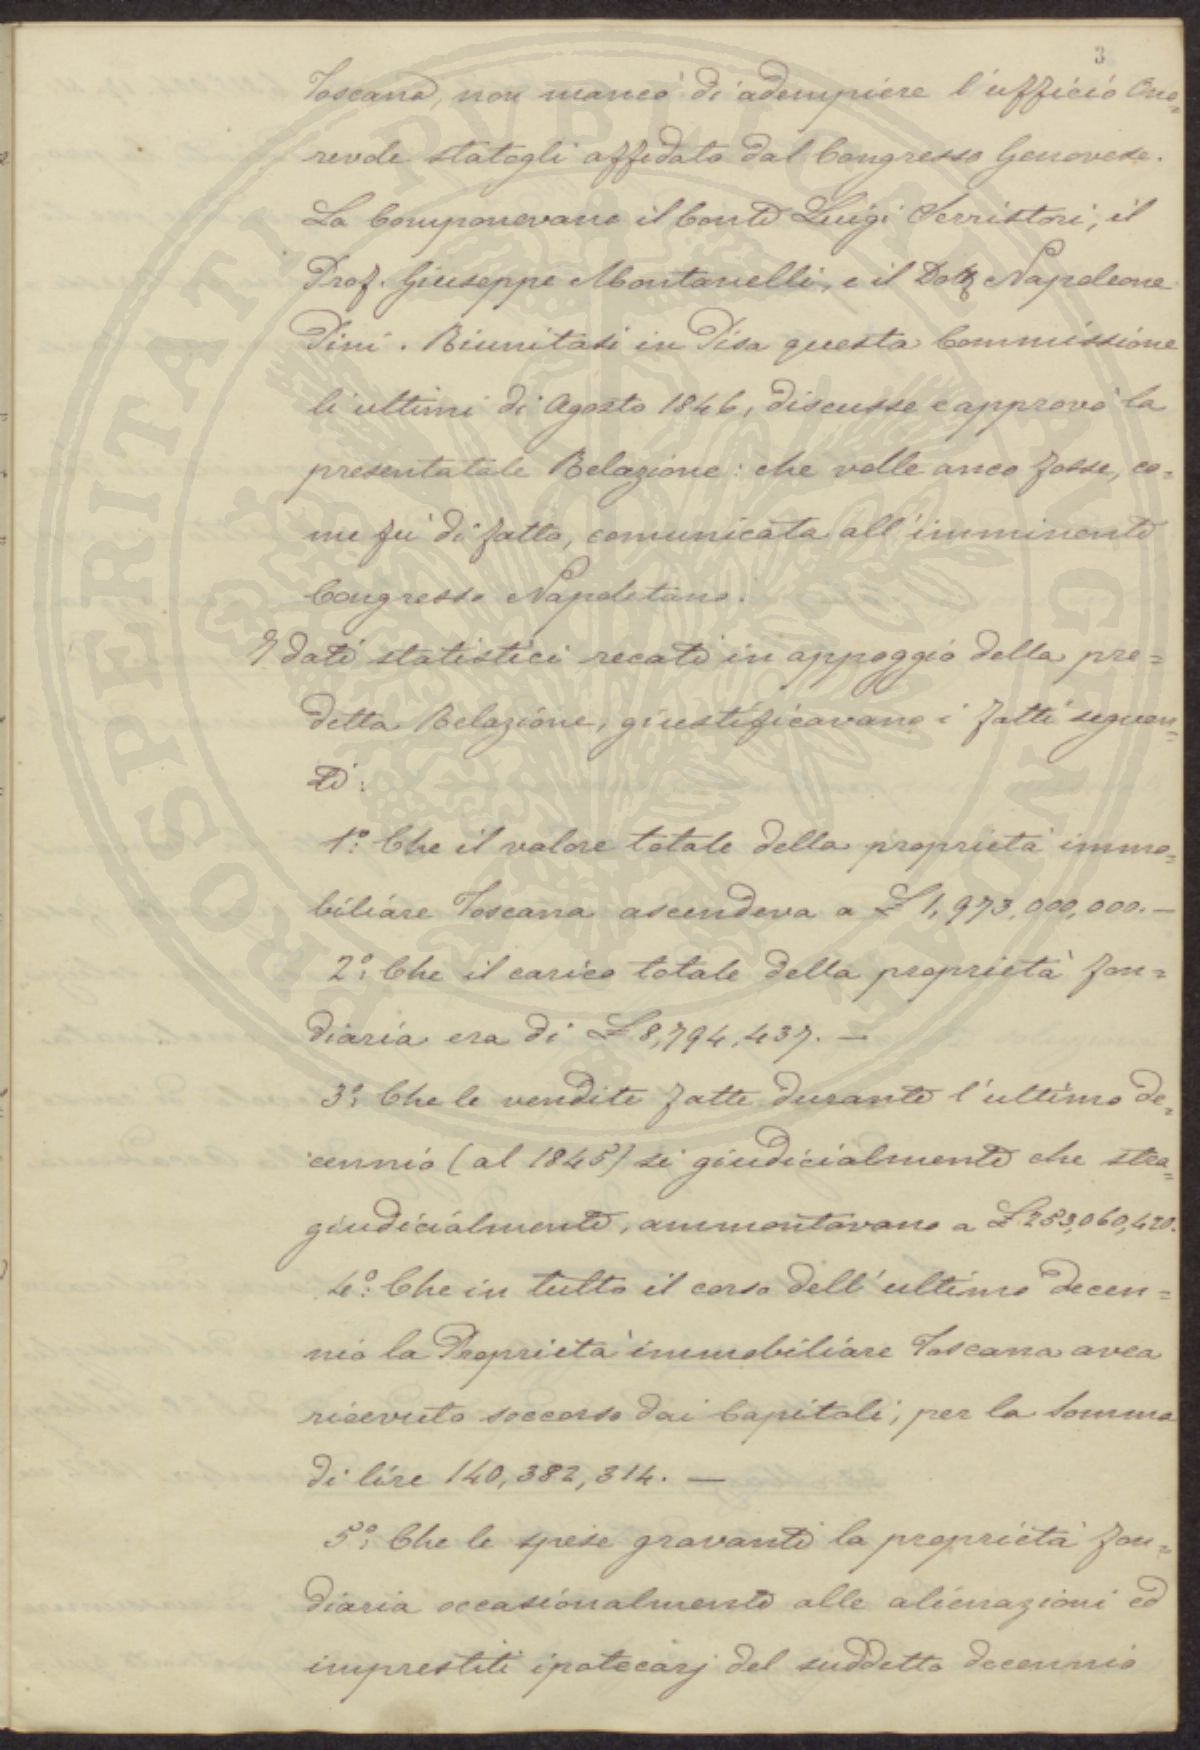 3
Toscana, non mancò di adempiere l'ufficio Ono=
revole statogli affidato dal Congresso Genovese.
La Componevano il Conte Luigi Serristori, il
Prof. Giuseppe Montanelli, e il Dott Napoleone
Pini. Riunitasi in Pisa questa Commissione
li ultimi di Agosto 1846, discusse e approvò la
presentatale Relazione: che volle anco fosse, co=
me fu di fatto, comunicata all'imminente
Congresso Napoletano.
I dati statistici recati in appoggio della pre=
detta Relazione, giustificavano i fatti seguen=
ti:
1º: Che il valore totale della proprietà immo=
biliare Toscana ascendeva a £ 1,973,000,000.—
2º: Che il carico totale della proprietà fon=
diaria era di £ 8,794,437.—
3º: Che le vendite fatte durante l'ultimo de=
cennio (al 1845) sì giudicialmente che stra=
giudicialmente, ammontavano a £ 253,060,420.
4º: Che in tutto il corso dell'ultimo decen=
nio la Proprietà immobiliare Toscana avea
ricevuto soccorso dai Capitali, per la Somma
di lire 140,382,314.—
5º: Che le spese gravanti la proprietà fon=
diaria occasionalmente alle alienazioni ed
imprestiti ipotecarj del suddetto decennio
PROSPERITATI PUBLICAE AUGENDAE